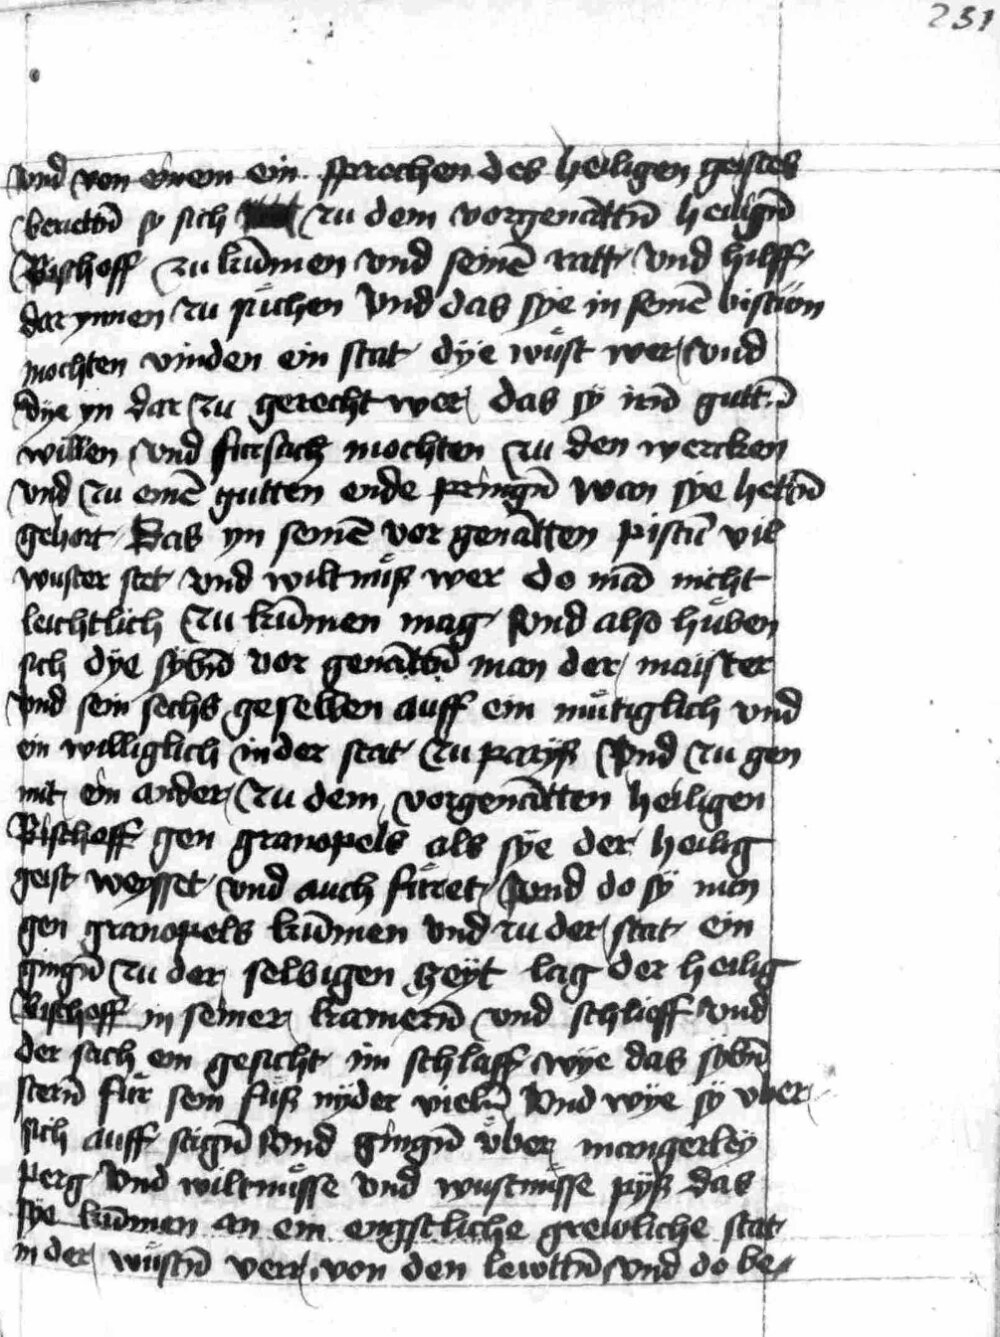 231
vnd von einem ein sprechen des heiligen geistes
berettn̄ sy sich zu dem vorgenāttn̄ heilign̄
Bischoff zu kūmen vnd seinē ratt vnd hilff
dar ynnen zu suchen vnd das sye in seinē bistūm
mochten vinden ein stat dye wůst wer vnd
dye yn dar zu gerecht wer das sy irn̄ guttn̄
willen vnd fursacz mochten zu den wercken
vnd zu einē gutten ende pringn̄ wan sye hettn̄
gehort Das yn seinē vor genātten pistū vil
wuster stet vnd wiltnůß wer do mā nicht
leichtlich zu kūmen mag vnd also hůben
sich dye sybn̄ vor genāttn̄ man der maister
vnd sein sechs gesellen auff ein můtiglich vnd
ein williglich in der stat zu paryß vnd zu gen
mit ein ander zu dem vorgenātten heiligen
Bischoff gen granopels als sye der heilig
geist weysset vnd auch fůret vnd do sy nun
gen granopels kūmen vnd zu der stat ein
gingn̄ zu der selbigen zeyt lag der heilig
Bischoff in seiner kamern̄ vnd schlieff vnd
der sach ein gesicht im schlaff wye das sybn̄
stern̄ fůr sein fůß nyder vieln̄ vnd wye sy vber
sich auff stign̄ vnd gingn̄ vber mangerley
perg vnd wiltnůsse vnd wustnůsse pyß das
sye kūmen an ein engstliche grewliche stat
in der wůstn̄ verr von den lewttn̄ vnd do be-